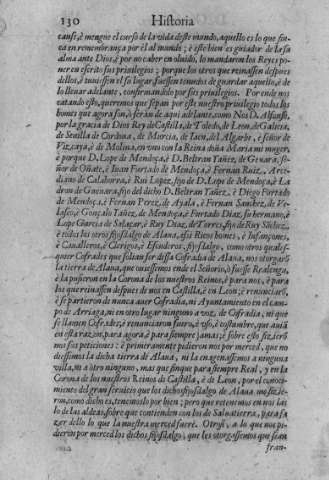 130 Historia
canse, è mengue el curso de la vida deste mundo, aquello es lo que fin-
ca en remembrança por èl al mundo; è este bien es guiador de la su
alma ante Dios, è por no caber en olvido, lo mandaron los Reyes po-
ner en escrito sus privilegios; porque los otros que reinassen despues
dellos, è tuviessen el su lugar, fuessen tenudos de guardar aquello, è de
lo llevar adelante, confirmandolo por sus privilegios. Por ende nos
catando esto, queremos que sepan por este nuestro privilegio todos los
homes que agora son, è seràn de aqui adelante, como Nos D. Alfonso,
por la gracia de Dios Rey de Castilla, de Toledo, de Leon, de Galicia,
de Sevilla, de Cordova, de Murcia, de Iaen, del Algarbe, è señor de
Vizcaya, è de Molina, en uno con la Reina doña Maria mi muger,
è porque D. Lope de Mendoça, è D. Beltran Yañez, de Guevara, se-
ñor de Oñate, è Ioan Furtado de Mendoça, è Fernan Ruiz, Arce-
diano de Calahorra, è Rui Lopez, fijo de D. Lope de Mendoça, è La
dron de Guevara, fijo del dicho D. Beltran Yañez, è Diego Furtado
de Mendoça, è Fernan Perez, de Ayala, è Fernan Sanchez, de Ve-
lasco, è Gonçalo Yañez, de Mendoça, è Furtado Diaz, su hermano, è
Lope Garcia de Salaçar, è Ruy Diaz, de Torres, fijo de Ruy Sãchez,
è todos los otros fijosdalgo de Alava, assi Ricos homes, è Infançones,
è Cavalleros, è Clerigos, è Escuderos, fijosdalgo, como otros quales-
quier Cofrades que solian ser dessa Cofradia de Alava, nos otorgarõ
la tierra de Alava, que oviessemos ende el Señorio, è fuesse Realenga,
è la pusieron en la Corona de los nuestros Reinos, è para nos, è para
los que reinassen despues de nos en Castilla, è en Leon; è renunciarõ,
è se partieron de nunca aver Cofradia, ni Ayuntamiento en el cam-
po de Arriaga, ni en otro lugar ninguno a voz, de Cofradia, ni que
se llamen Cofrades, è renunciaron fuero, è uso, è costumbre, que avià
en esta razon, para agora, è para siempre jamas; è sobre esto fizierõ
nos sus peticiones: è primeramente pidieron nos por merced, que no
diessimos la dicha tierra de Alava, ni la enagenassemos a ninguna
villa, ni a otro ninguno, mas que finque para siempre Real, y en la
Corona de los nuestros Reinos de Castilla, è de Leon, por el conoci-
miento del gran servicio que los dichos fijosdalgo de Alava nos fizie-
ron, como dicho es, tenemoslo por bien; pero que retenemos en nos las
lo de las aldeas, sobre que contienden con los de Salvatierra, para fa
zer dello lo que la nuestra merced fuere. Otrosi, a lo que nos pi-
dieron por merced los dichos fijosdalgo, que les otorgassemos que sean
fran-